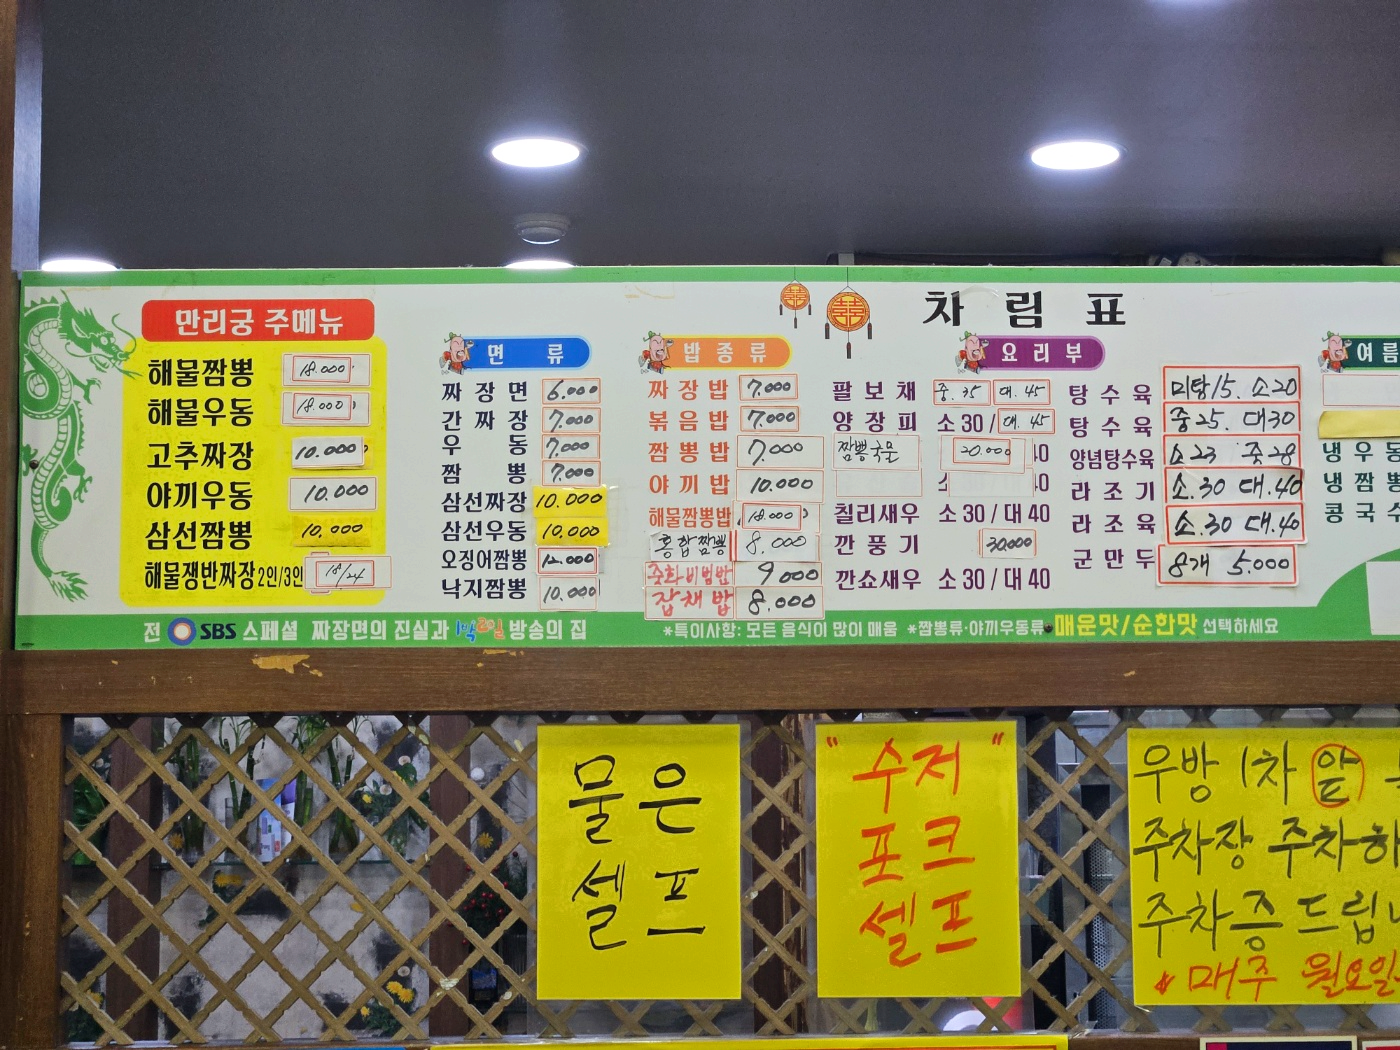 차림표
만리궁 주메뉴
해물짬뽕 18.000
해물우동 18.000
고추짜장 10.000
야끼우동 10.000
삼선짬뽕 10.000
해물쟁반짜장 2인/3인 18/24
면 류
짜장면 6.000
간짜장 7.000
우동 7.000
짬뽕 7.000
삼선짜장 10.000
삼선우동 10.000
오징어짬뽕 12.000
낙지짬뽕 10.000
밥종류
짜장밥 7.000
볶음밥 7.000
짬뽕밥 7.000
야끼밥 10.000
해물짬뽕밥 18.000
홍합짬뽕 8.000
중화비빔밥 9000
잡채밥 8.000
요리부
팔보채 중.35 대.45
양장피 소30/대.45
짬뽕국물 20.000
칠리새우 소30/대40
깐풍기 30.000
깐쇼새우 소30/대40
탕수육 미탕15. 소20
탕수육 중25. 대30
양념탕수육 소23 중28
라조기 소.30 대.40
라조육 소.30 대.40
군만두 8개 5.000
여름
냉우동
냉짬뽕
콩국수
전 SBS 스페셜 짜장면의 진실과 1박2일 방송의 집
*특이사항: 모든 음식이 많이 매움 *짬뽕류·야끼우동류 매운맛/순한맛 선택하세요
물은
셀프
"수저"
포크
셀프
우방 1차 앞
주차장 주차하
주차증 드립니
* 매주 월요일